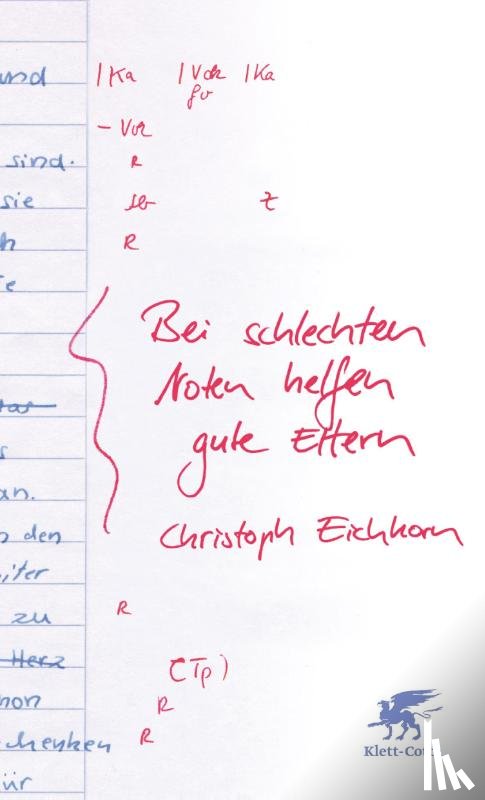 und |Ka |Vor |Ka
gr
- Vor
sind. R
sie sb z
h R
e
Bei schlechten
Noten helfen
gute Eltern
an.
Christoph Eichhorn
den
iter
zu R
Herz (Tp)
hon R
chenken R
ür
Klett-Cott